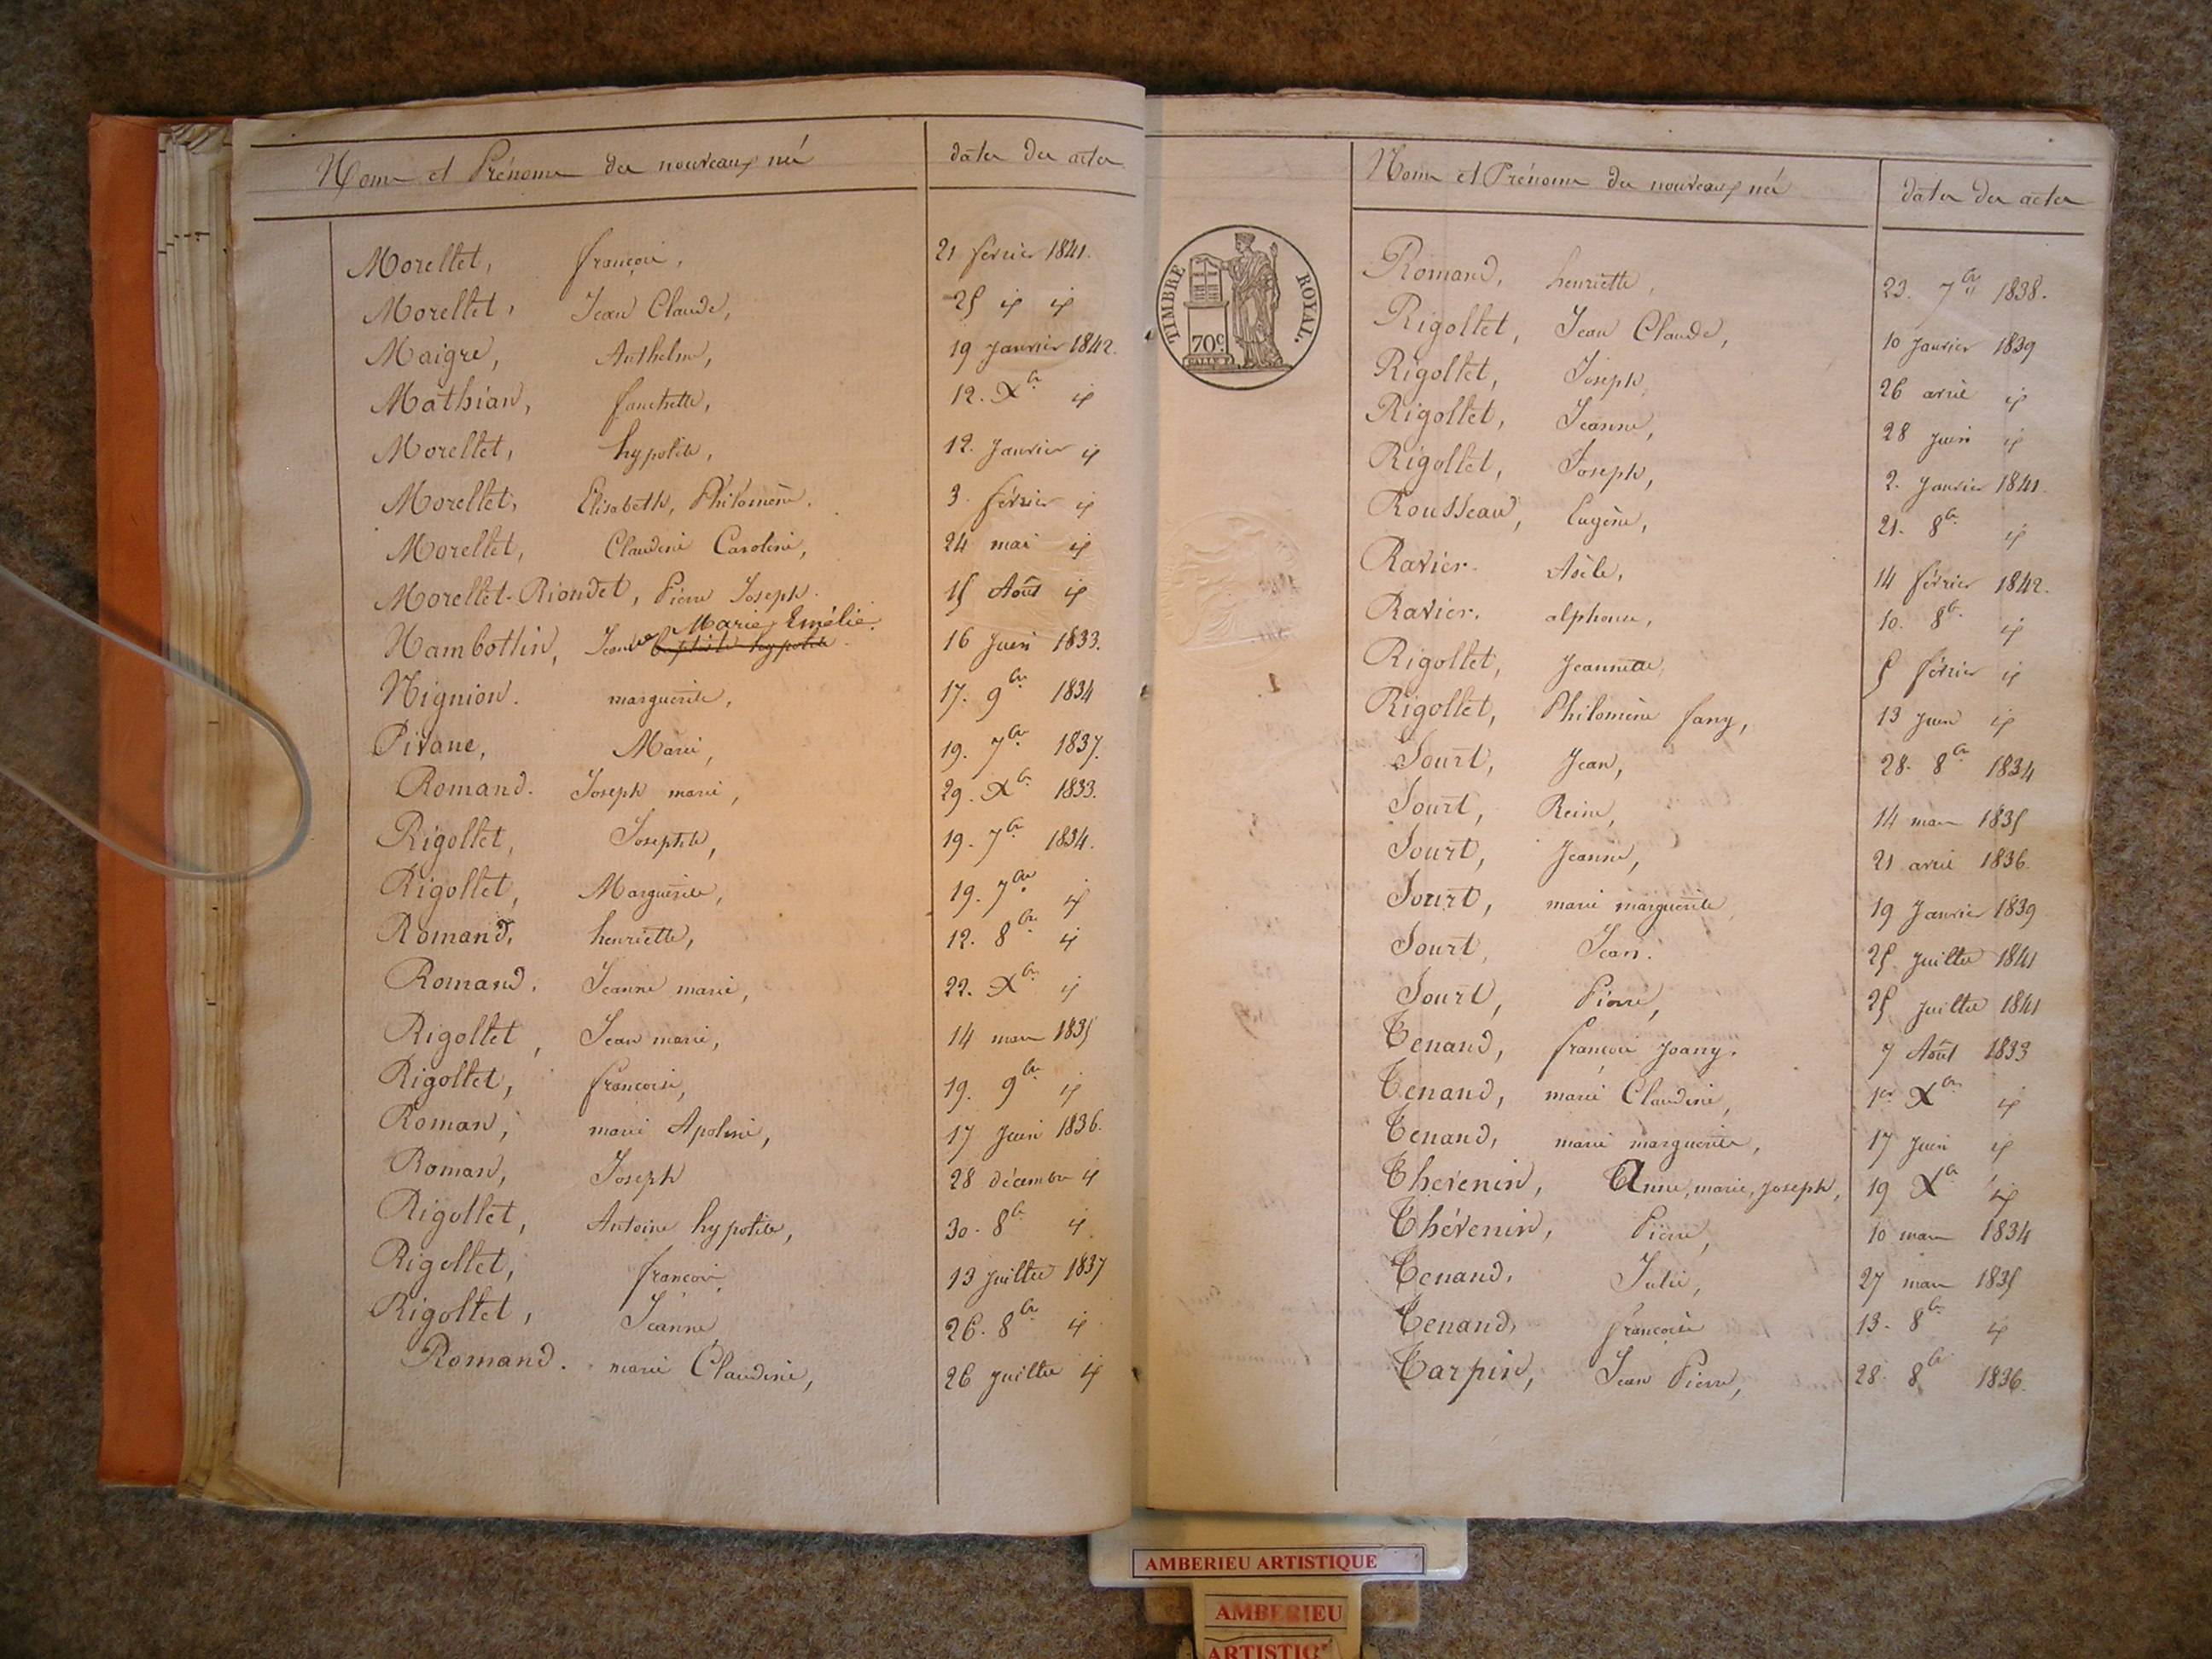 Noms et Prénoms des nouveaux nés dates des actes
Morellet, françois, 21 fevrier 1841.
Morellet, Jean Claude, 25 id id
Maigre, Anthelme, 19 Janvier 1842.
Mathian, fanchette, 12. Xbre id
Morellet, hypolite, 12. Janvier id
Morellet, Elisabeth, Philomène. 3. février id
Morellet, Claudine Caroline, 24 mai id
Morellet-Riondet, Pierre Joseph. 15 Août id
Marie Emélie.
Nambottin, Jeanne baptiste hypolite. 16 Juin 1833.
Nignion. marguerite, 17. 9bre 1834
Pivane, Marie, 19. 7bre 1837.
Romand. Joseph marie, 29. Xbre 1833.
Rigollet, Josephte, 19. 7bre 1834.
Rigollet, Marguerite, 19. 7bre id
Romand, henriette, 12. 8bre id
Romand. Jeanne marie, 22. Xbre id
Rigollet, Jean marie, 14 mars 1835
Rigollet, francoise, 19. 9bre id
Roman, marie Apoline, 17 Juin 1836.
Roman, Joseph 28 décembre id
Rigollet, Antoine hypolite, 30. 8bre id
Rigollet, francois 13 Juillet 1837
Rigollet, Jeanne 26. 8bre id
Romand. marie Claudine, 26 Juillet id
Noms et Prénoms des nouveaux nés dates des actes
TIMBRE ROYAL.
70c.
Romand, henriette, 23. 7bre 1838.
Rigollet, Jean Claude, 10 Janvier 1839
Rigollet, Joseph, 26 avril id
Rigollet, Jeanne, 28 Juin id
Rigollet, Joseph, 2. Janvier 1841.
Rousseau, Eugène, 21. 8bre id
Ravier. Adèle, 14 février 1842.
Ravier. alphonse, 10. 8bre id
Rigollet, Jeannette, 5 février id
Rigollet, Philomène fany, 13 Juin id
Sourt, Jean, 28. 8bre 1834
Sourt, Reine, 14 mars 1835
Sourt, Jeanne, 21 avril 1836.
Sourt, marie marguerite 19 Janvier 1839
Sourt, Jean. 25 Juillet 1841
Sourt, Pierre, 25 Juillet 1841
Tenand, françois Joany. 7 Août 1833
Tenand, marie Claudine, 1er Xbre id
Tenand, marie marguerite, 17 Juin id
Thevenin, Anne, marie, Joseph, 19 Xbre id
Thévenin, Pierre, 10 mars 1834
Tenand, Julie, 27 mars 1835
Tenand, françoise 13. 8bre id
Tarpin, Jean Pierre, 28. 8bre 1836.
AMBERIEU ARTISTIQUE
AMBERIEU
ARTISTIQ